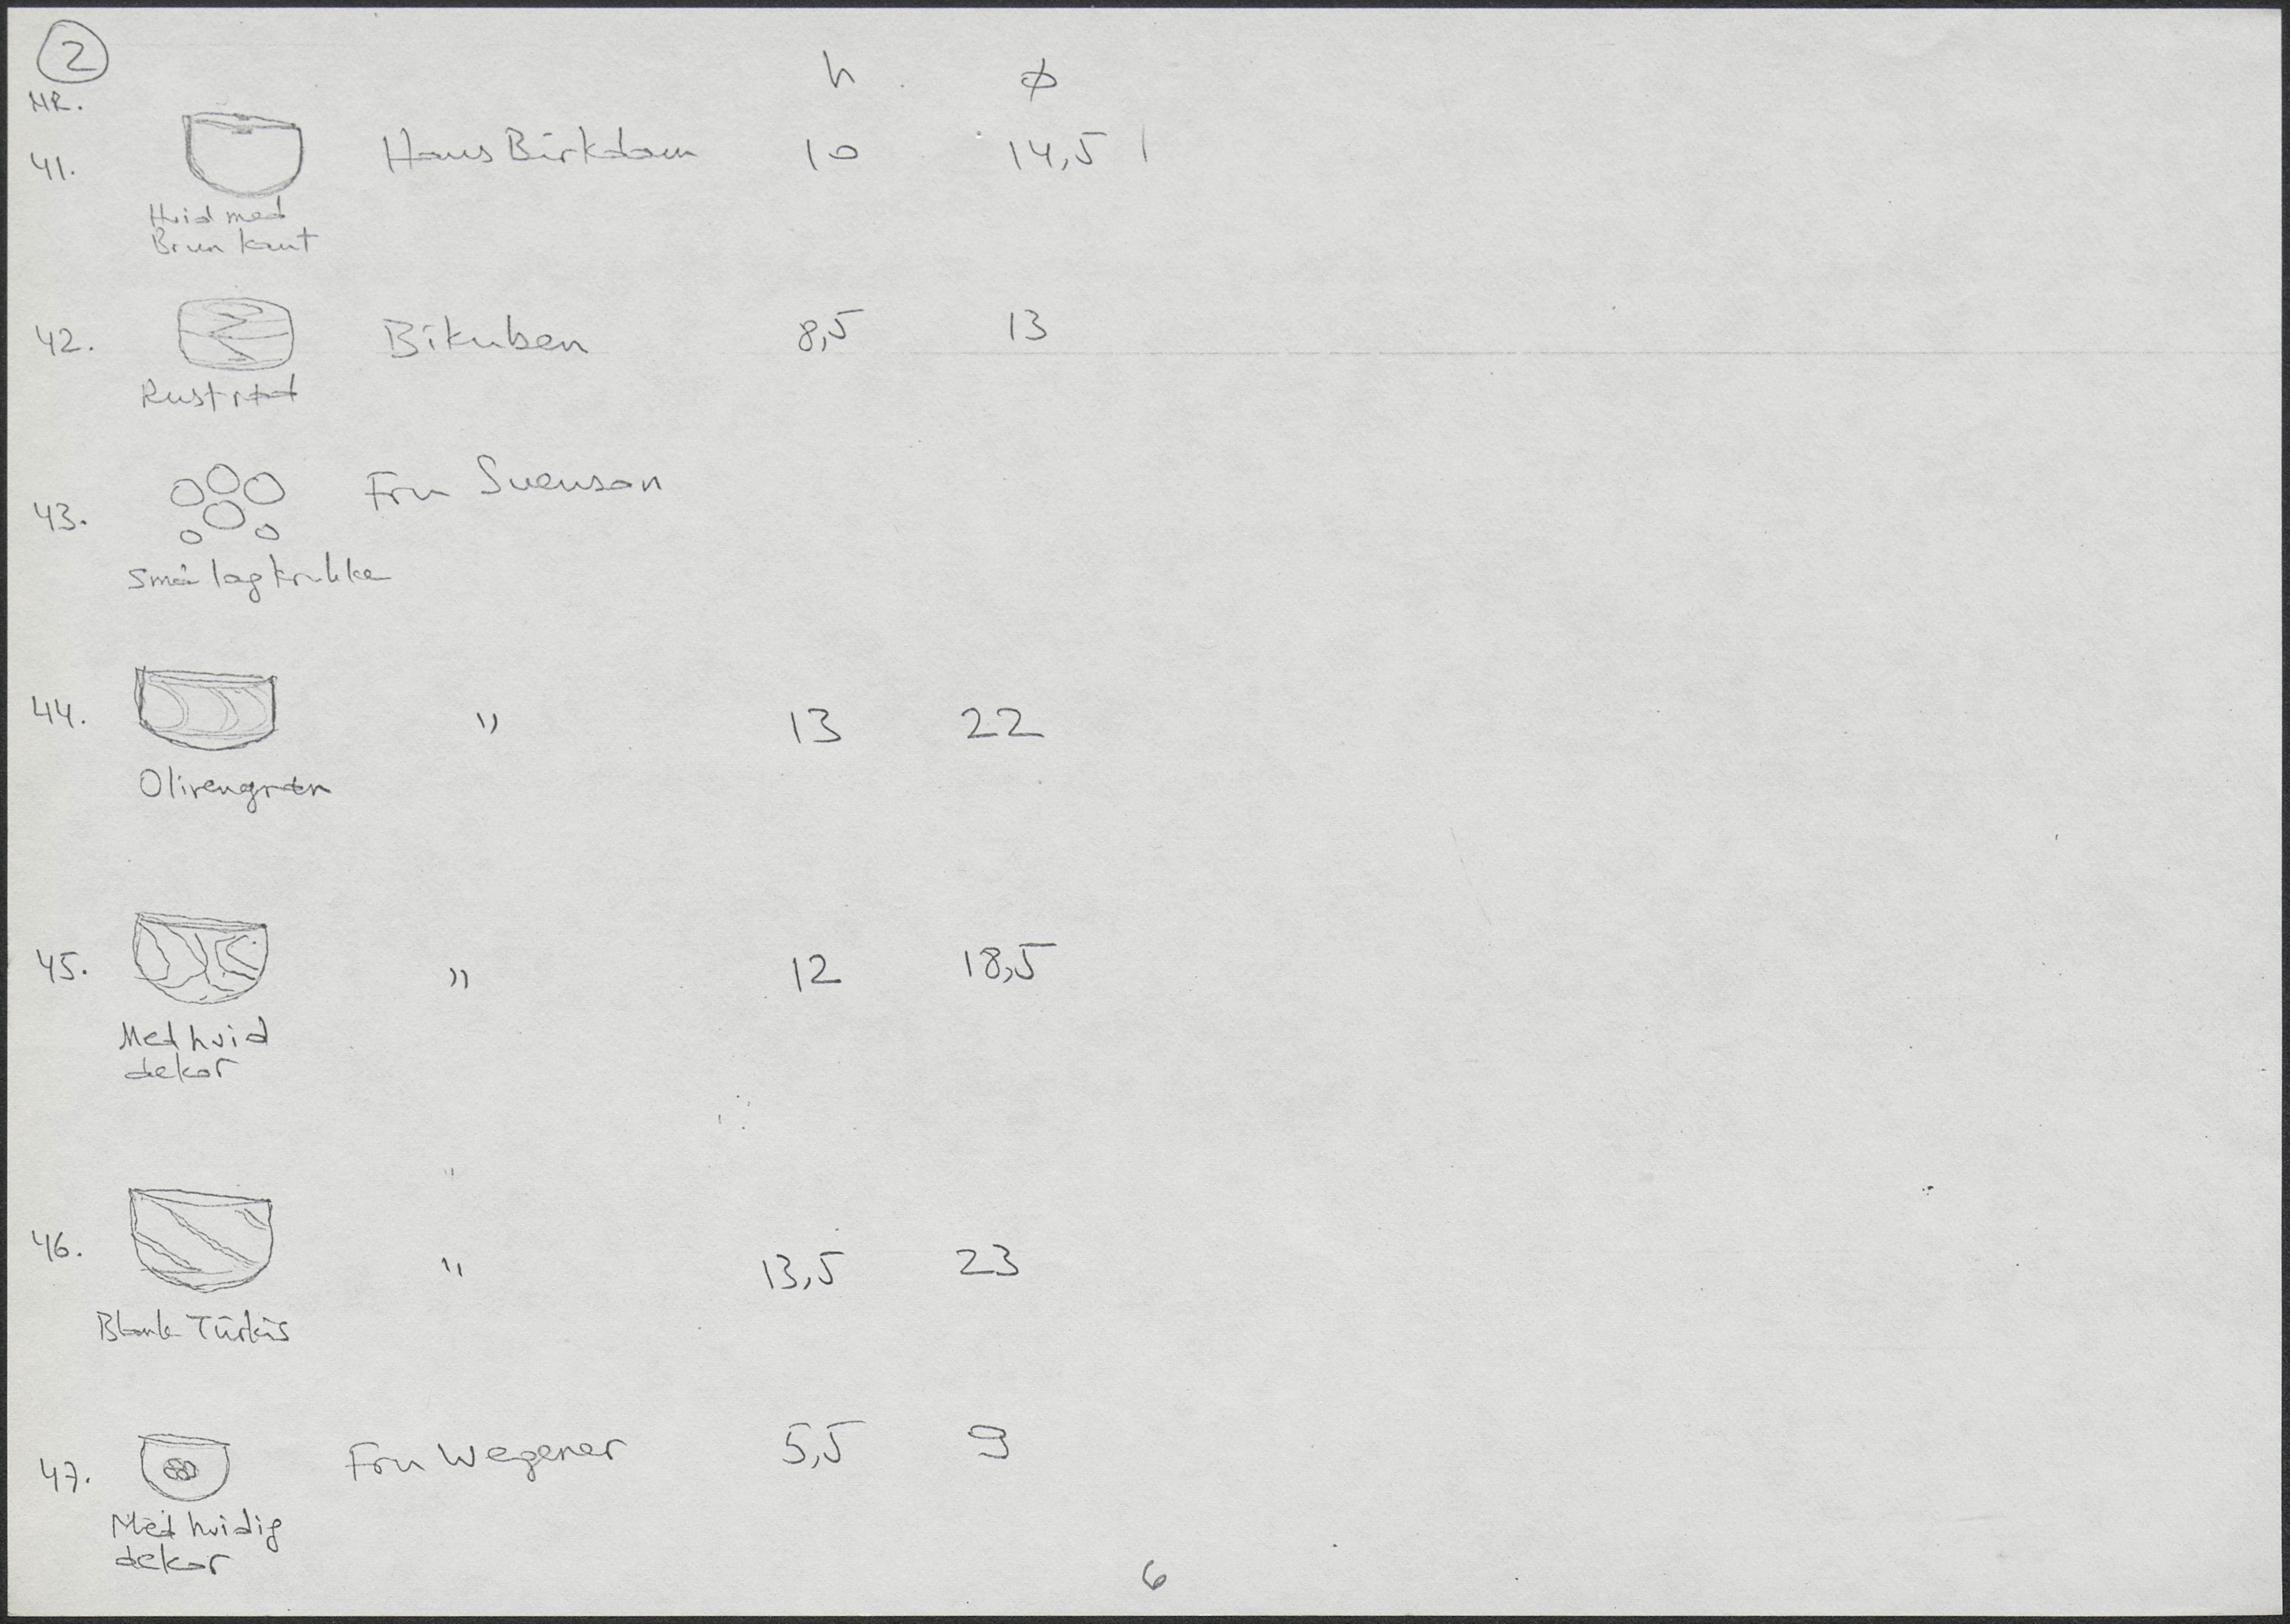 2
h ø
NR.
41. Hans Birkdam 10 14,5
Hvid med
Brun kant
42. Bikuben 8,5 13
Rustrød
43. Fru Svenson
Små lågkrukke
44. " 13 22
Olivengrøn
45. " 12 18,5
Med hvid
dekor
46. " 13,5 23
Blank Türkis
47. Fru Wegener 5,5 9
Med hvidig
dekor
6